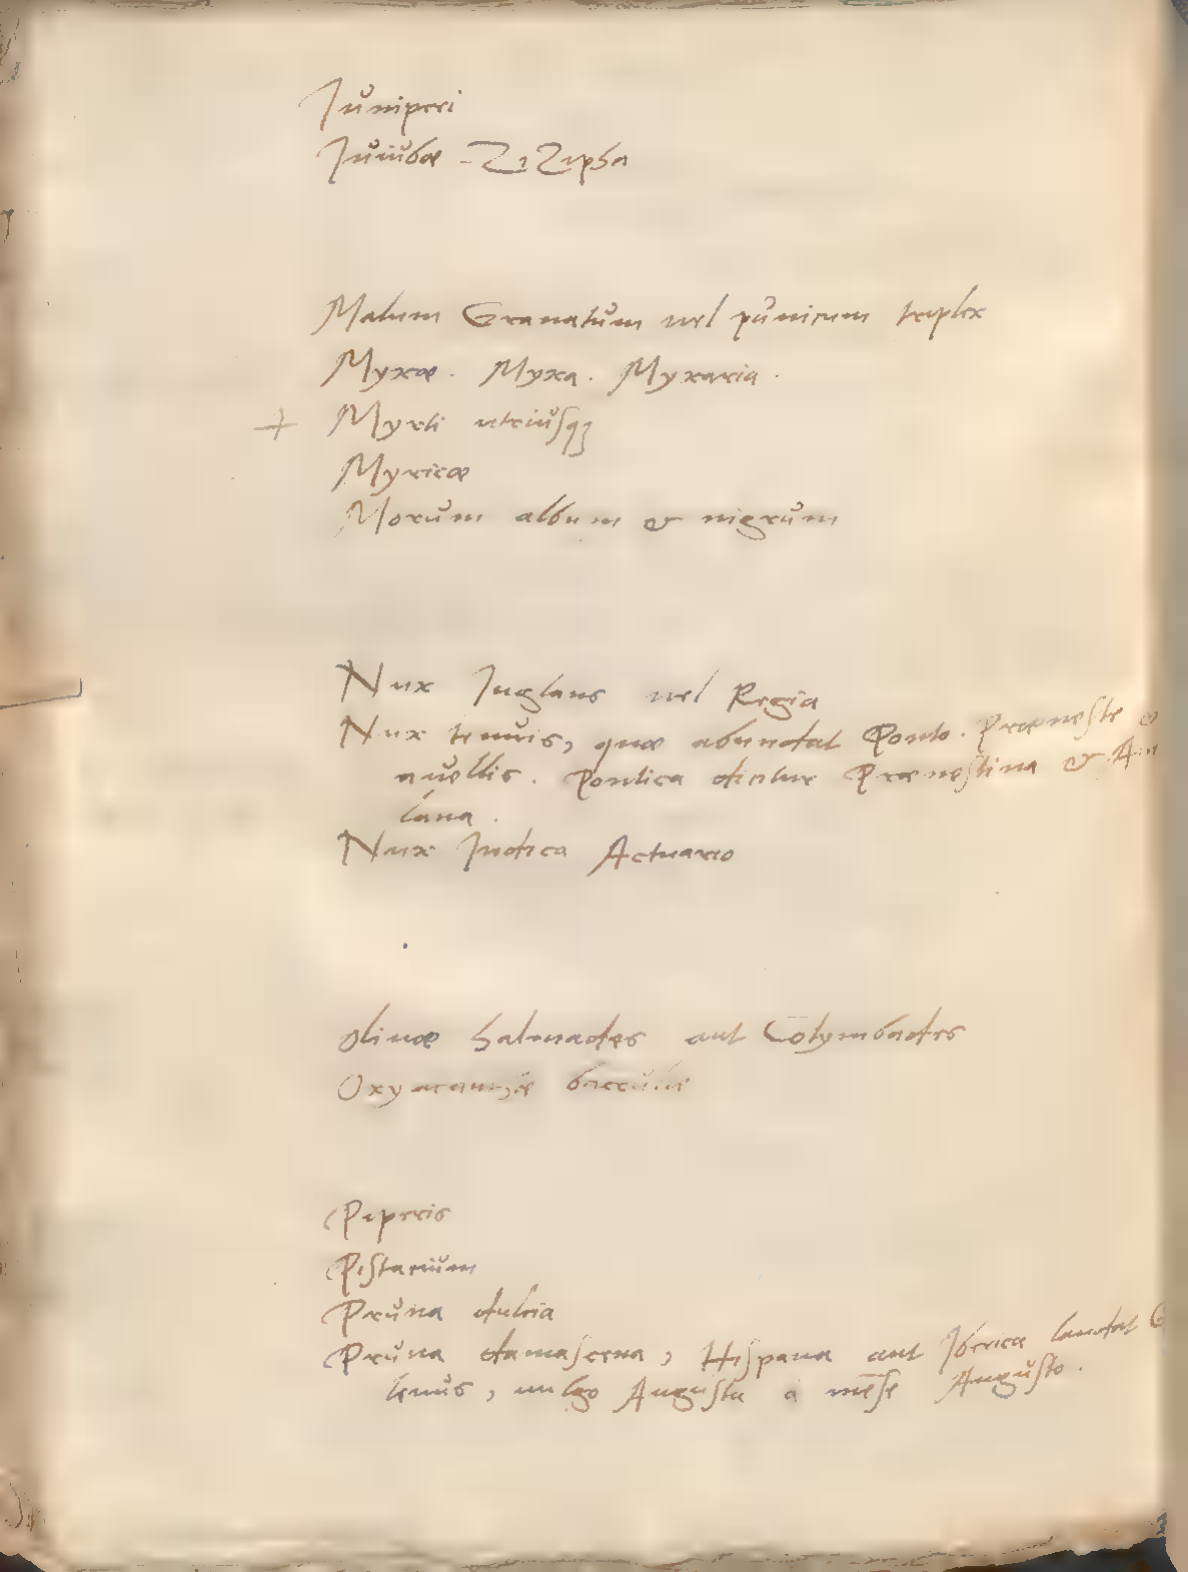 Juniperi
Juiubæ - ZiZipha
Malum Granatum uel punicum triplex
Myxæ. Myxa. Myxaria.
+ Myrti utriusq3
Myricæ
Morum album & nigrum
Nux Juglans uel Regia
Nux tenuis, quæ abundat Ponto. Præneste &
auellis. Pontica dicitur Prænestina & Au
lana.
Nux Indica Actuario
Oliuæ halmades aut Colymbades
Oxyacanthæ
Piperis
Pistacium
Pruna dulcia
Pruna damascena, Hispana aut Iberica laudat G
lenus, uulgo Augusta a mēse Augusto.